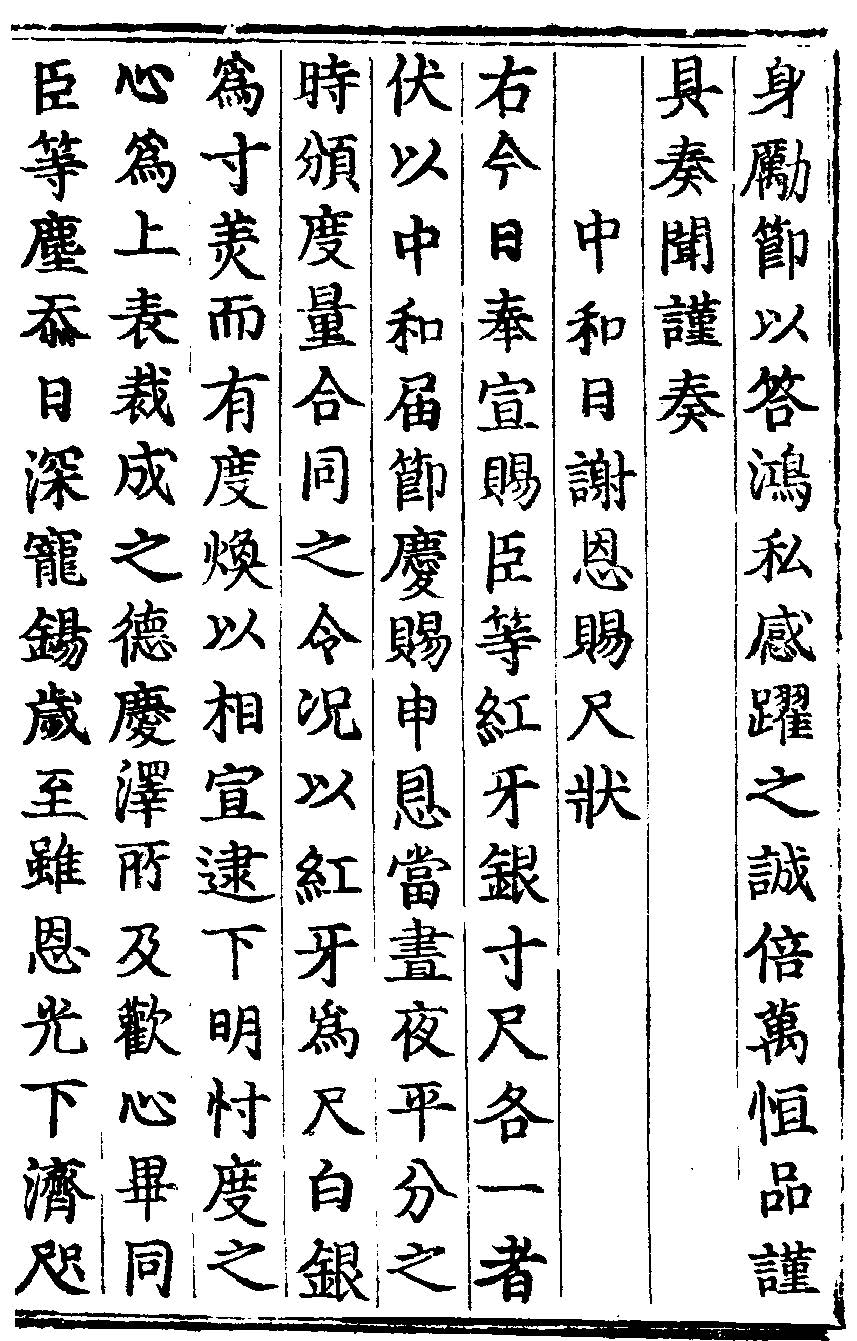 身勵節以答鴻私感躍之誠倍萬恒品謹
具奏聞謹奏
中和日謝恩賜尺狀
右今日奉宣賜臣等紅牙銀寸尺各一者
伏以中和届節慶賜申恩當晝夜平分之
時頒度量合同之令况以紅牙爲尺白銀
爲寸羙而有度煥以相宣逮下明忖度之
心爲上表裁成之德慶澤所及歡心畢同
臣等塵忝日深寵錫歲至雖恩光下濟咫